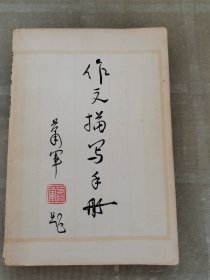 作文描写手册
萧军
题